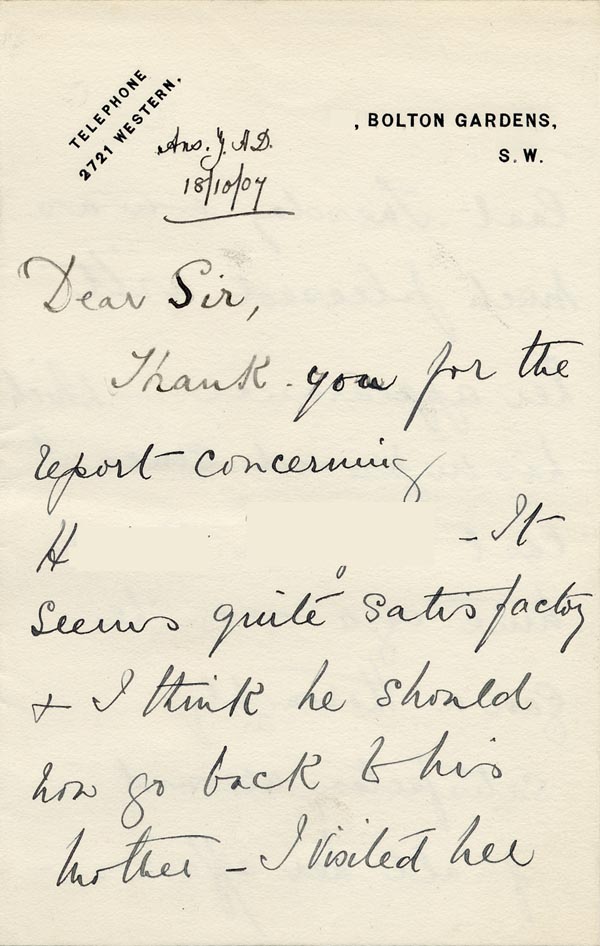 TELEPHONE
2721 WESTERN.
Ans. J. A D.
18/10/07
, BOLTON GARDENS,
S. W.
Dear Sir,
Thank you for the
report concerning
H
- It
seems quite satisfactory
+ I think he should
now go back to his
mother - I visited her